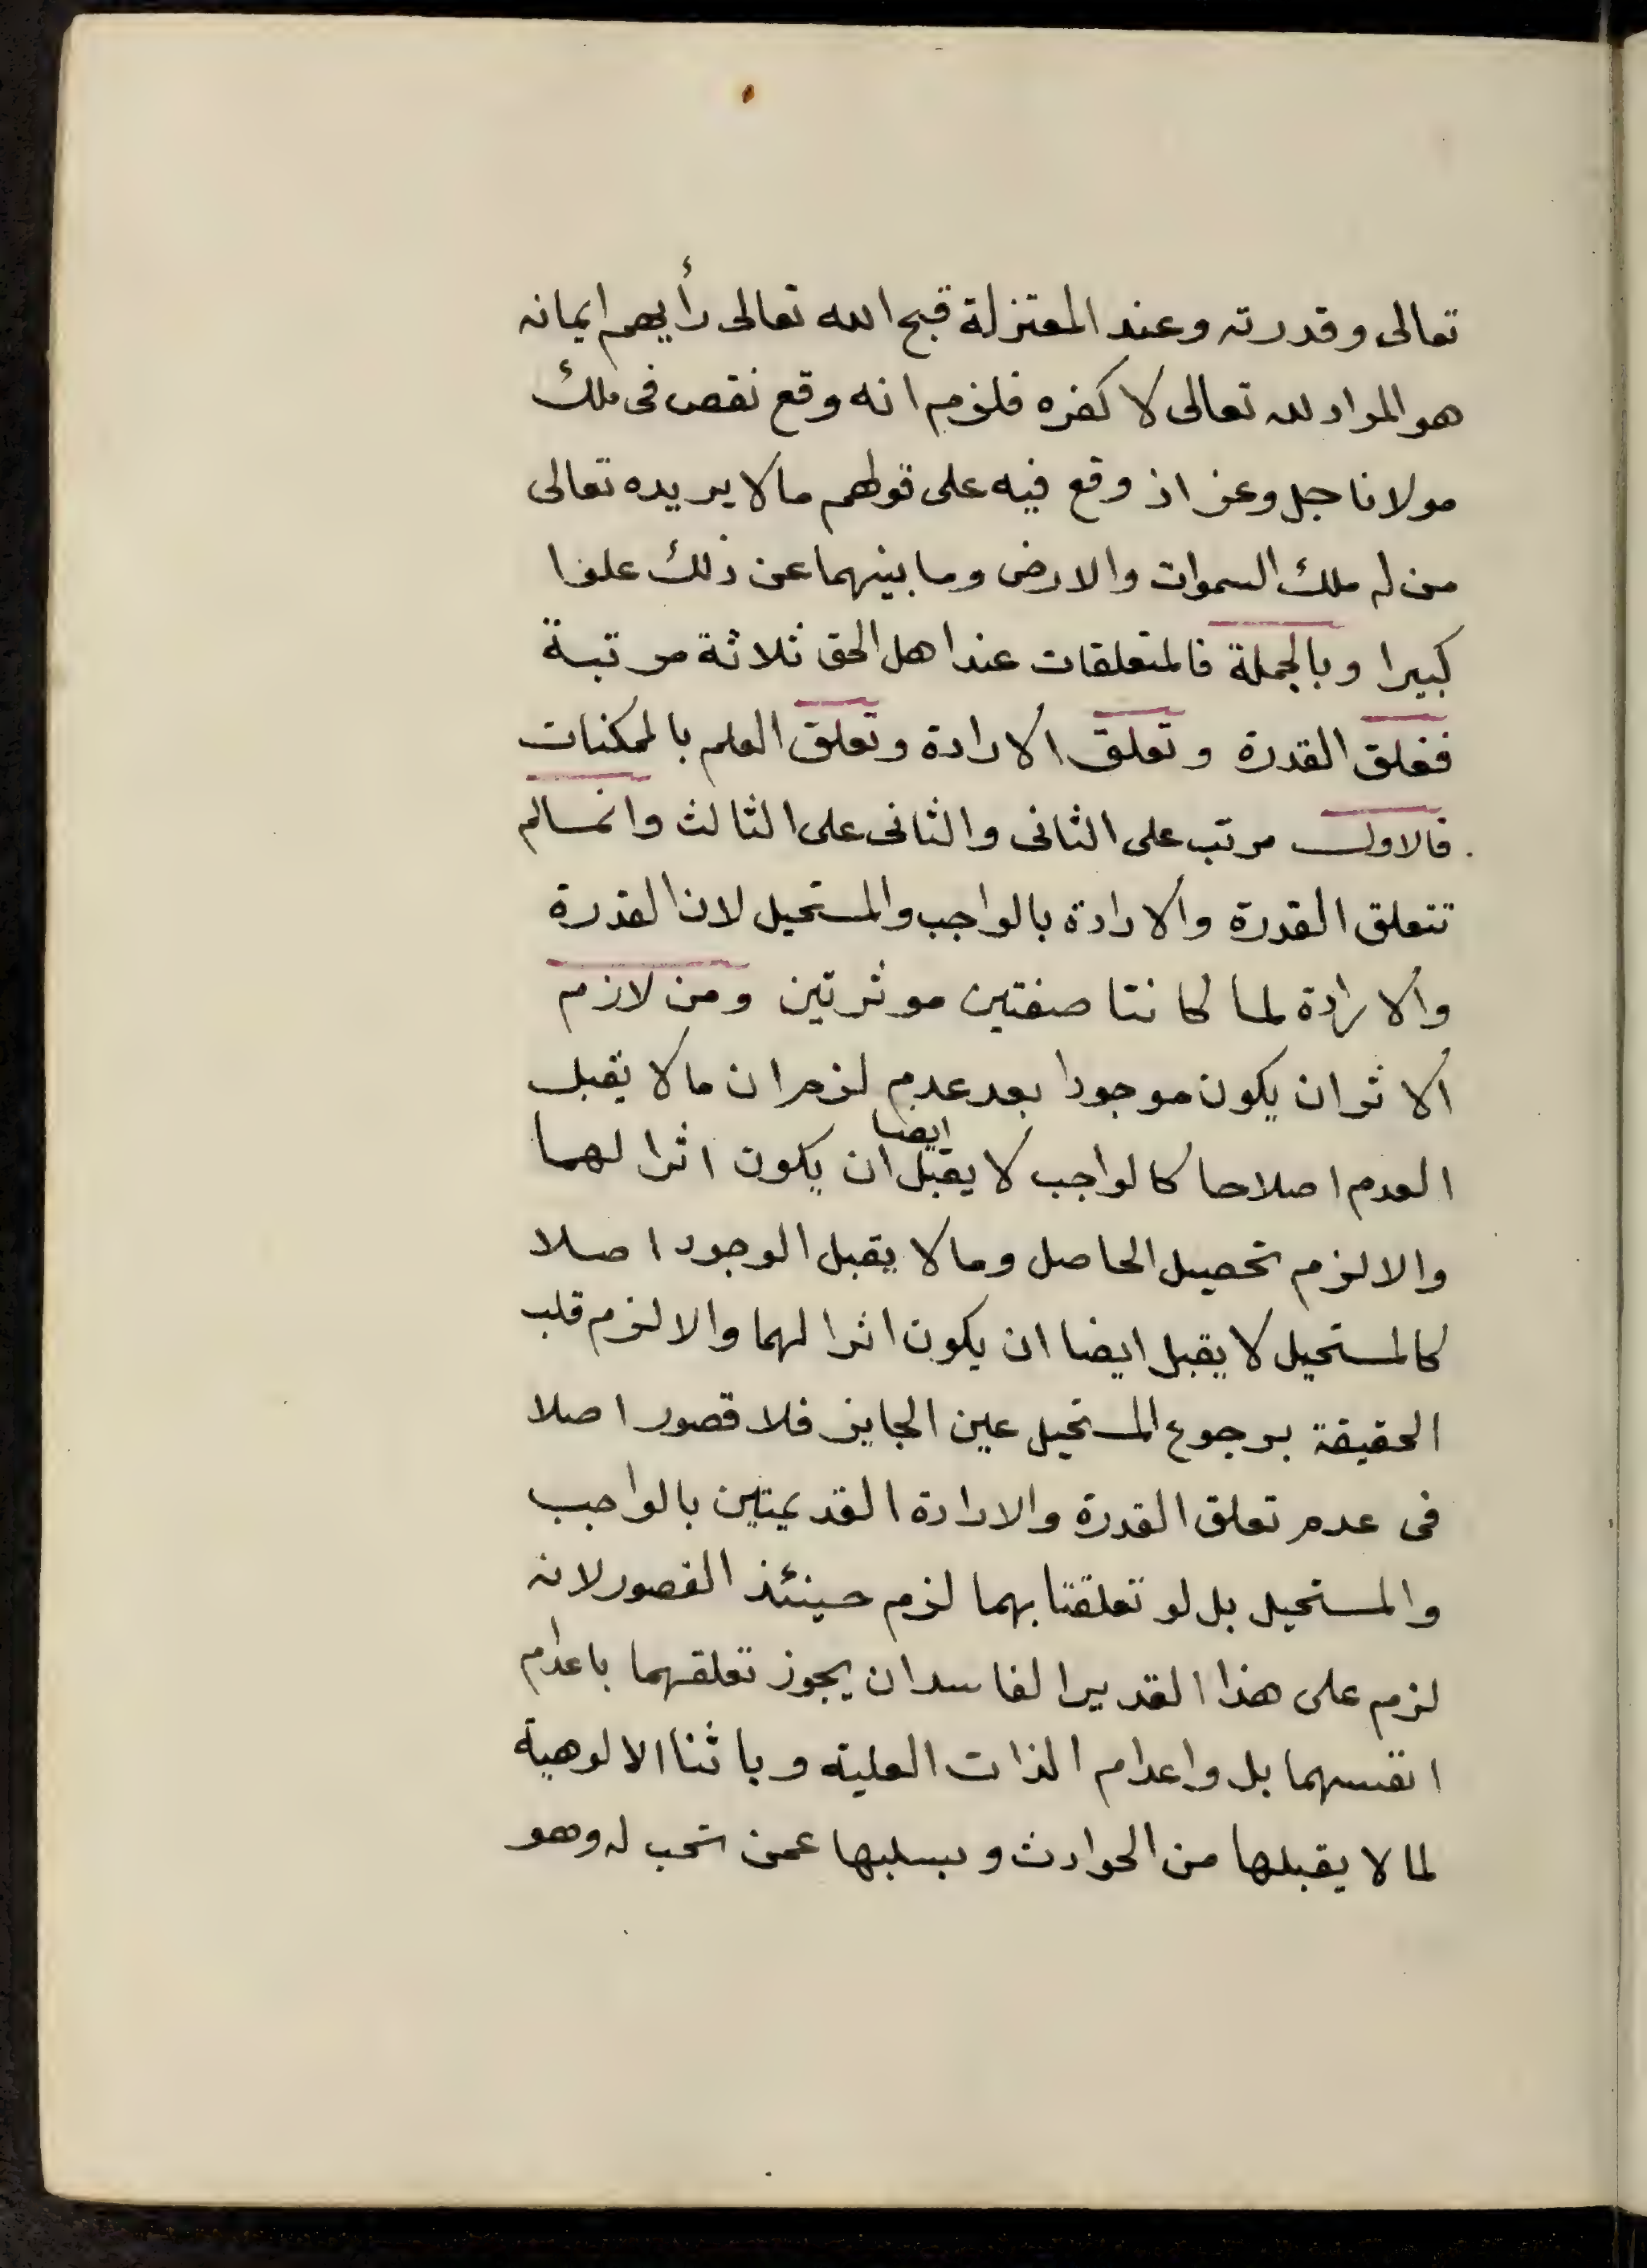 تعالى وقدرته وعند المعتزلة قبح الله تعالى رأيهم ايمانه
هو المراد لله تعالى لا كفره فلزم انه وقع نقص فى ملك
مولانا جل وعز اذ وقع فيه على قولهم ما لا يريده تعالى
من له ملك السموات والارض وما بينهما عن ذلك علوا
كبيرا وبالجملة فالمتعلقات عند اهل الحق ثلاثة مرتبة
فتعلق القدرة وتعلق الارادة وتعلق العلم بالممكنات
فالاول مرتب على الثانى والثانى على الثالث وانما لم
تتعلق القدرة والارادة بالواجب والمستحيل لان القدرة
والارادة لما كانتا صفتين موثرتين ومن لازم
الاثر ان يكون موجودا بعد عدم لزم ان ما لا يقبل
العدم اصلا حا كالواجب لا يقبل ايضا ان يكون اثرا لهما
والا لزم تحصيل الحاصل وما لا يقبل الوجود اصلا
كالمستحيل لا يقبل ايضا ان يكون اثرا لهما والا لزم قلب
الحقيقة برجوع المستحيل عين الجايز فلا قصور اصلا
فى عدم تعلق القدرة والارادة القديمتين بالواجب
والمستحيل بل لو تعلقتا بهما لزم حينئذ القصور لانه
لزم على هذا القدير الفاسد ان يجوز تعلقهما باعدام
انفسهما بل واعدام الذات العلية وباثنا الالوهية
لما لا يقبلها من الحوادث وبسلبها عمن تجب له وهو